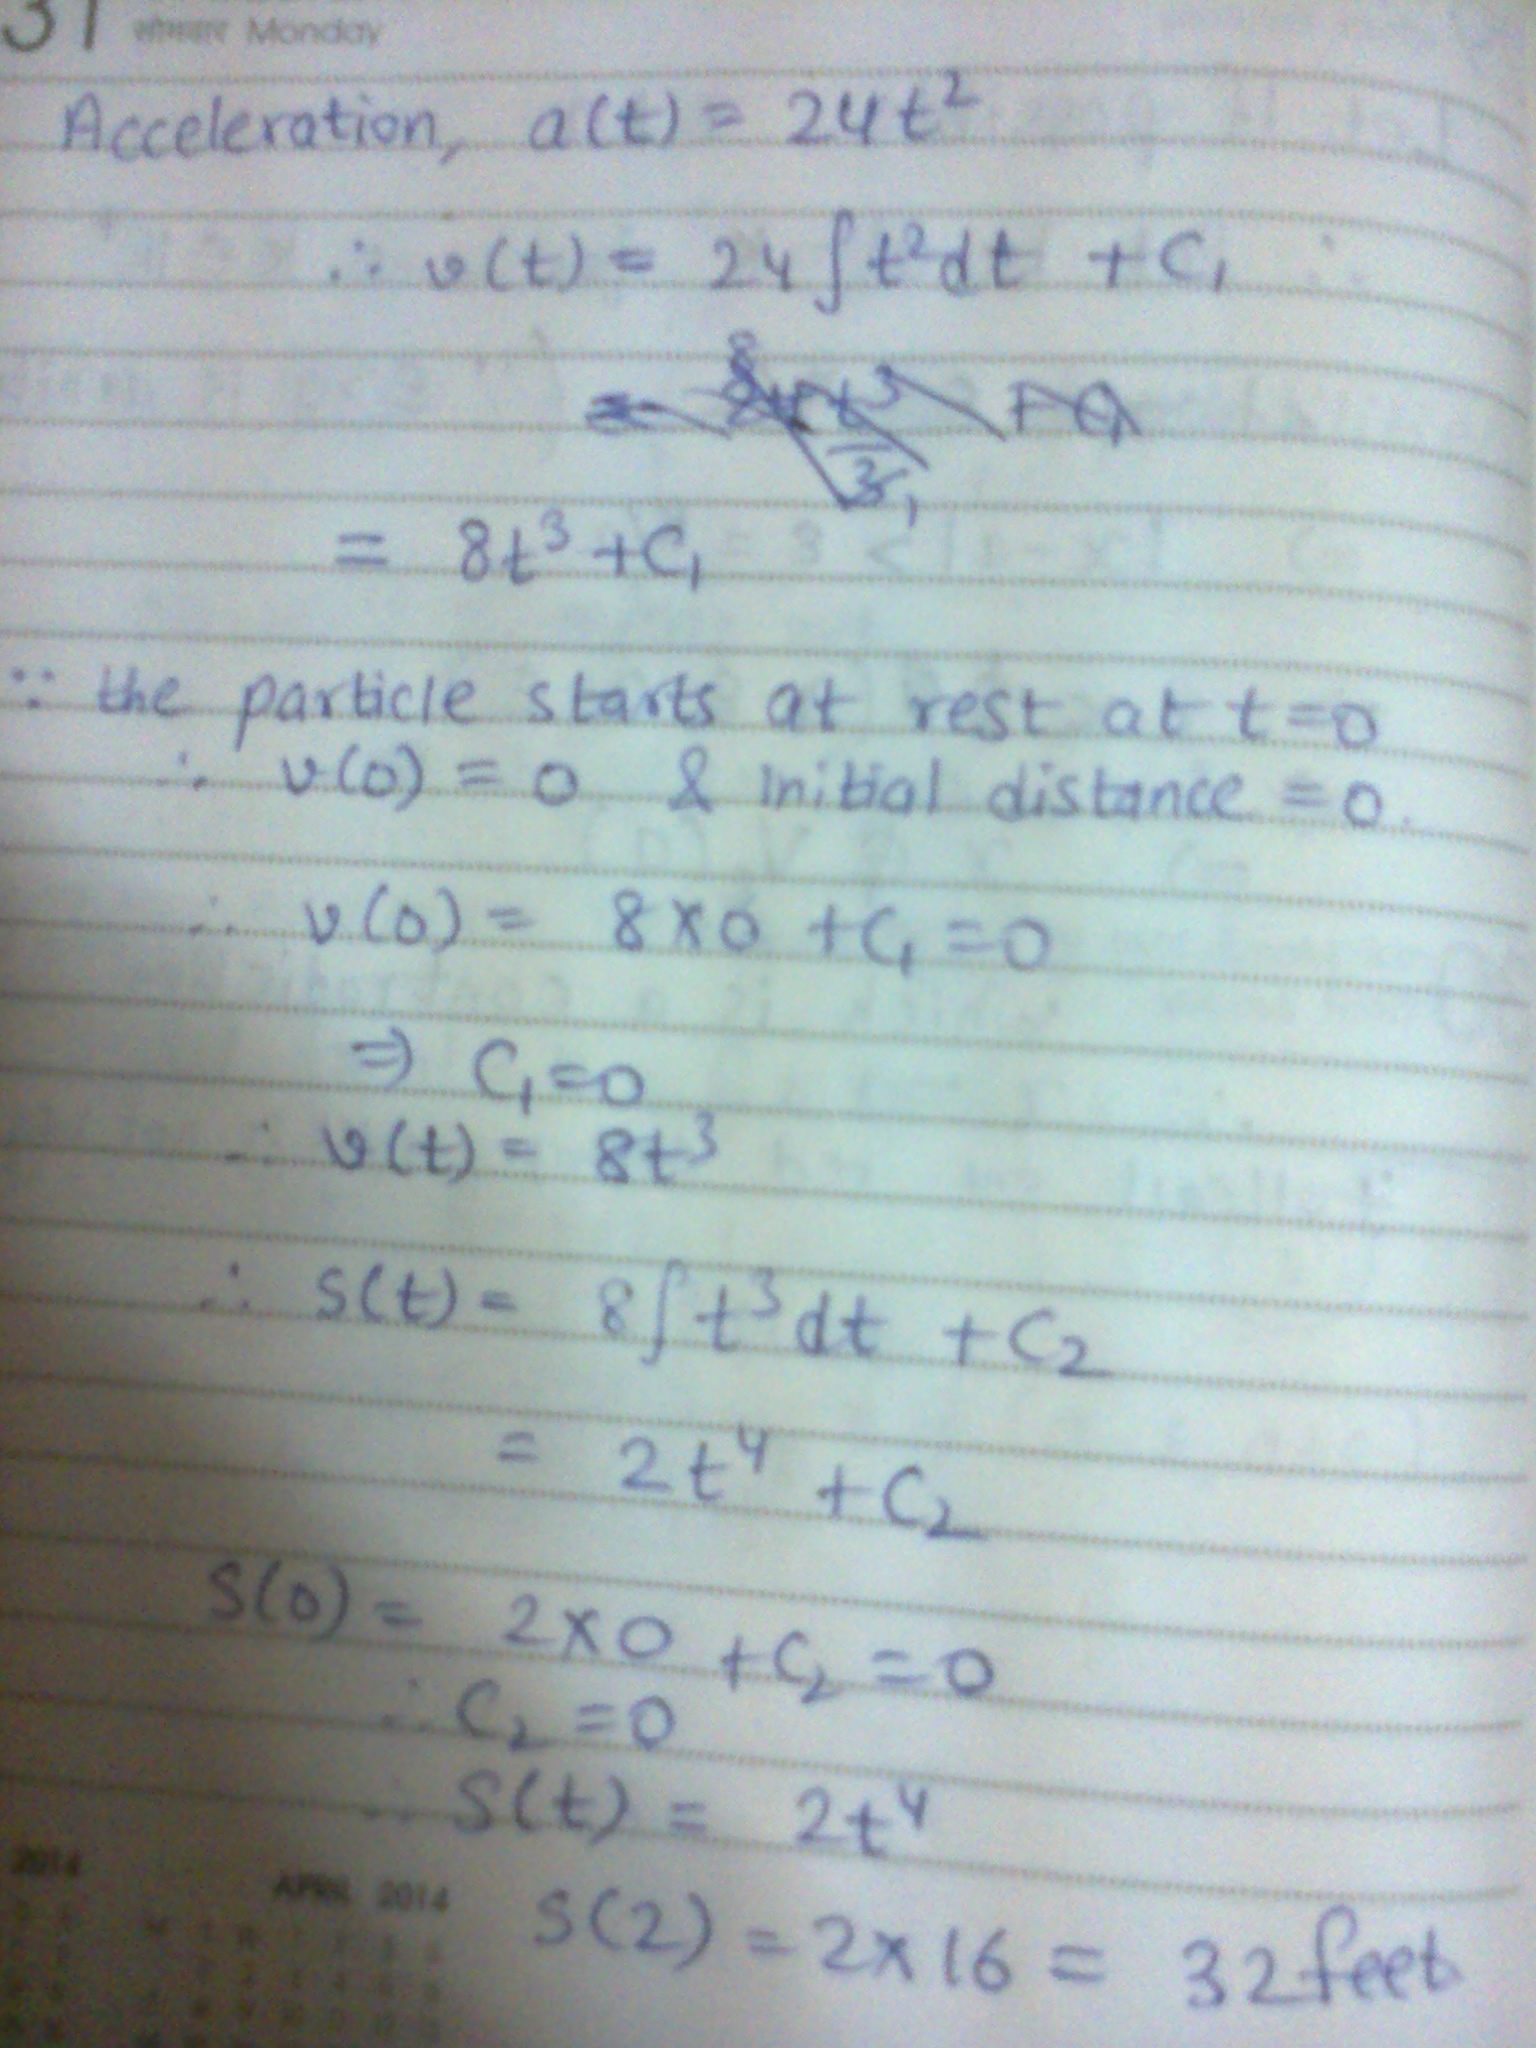 31 सोमवार Monday
Acceleration, a(t) = 24t²
∴ v(t) = 24∫t²dt + C₁
= 8t³ + C₁
∵ the particle starts at rest at t=0
∴ v(0) = 0 & initial distance = 0.
∴ v(0) = 8×0 + C₁ = 0
⇒ C₁ = 0
∴ v(t) = 8t³
∴ S(t) = 8∫t³dt + C₂
= 2t⁴ + C₂
S(0) = 2×0 + C₂ = 0
∴ C₂ = 0
∴ S(t) = 2t⁴
2014 APRIL 2014
S(2) = 2×16 = 32 feet